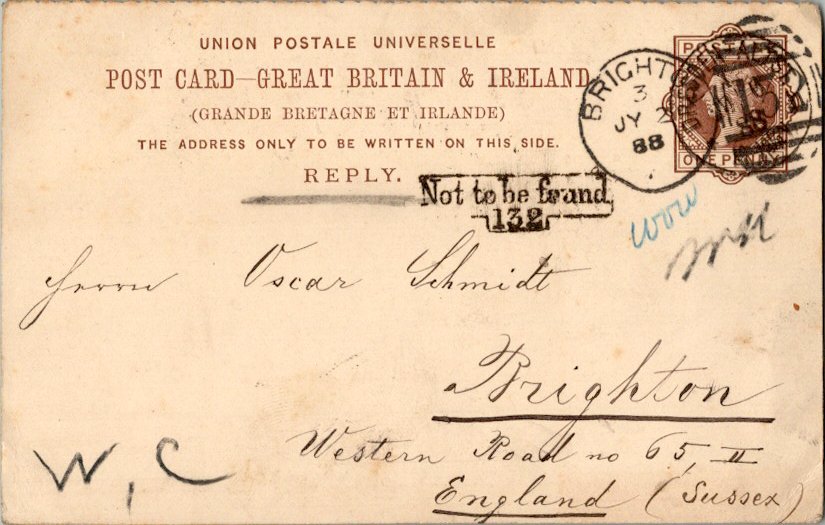 UNION POSTALE UNIVERSELLE
POST CARD—GREAT BRITAIN & IRELAND
(GRANDE BRETAGNE ET IRLANDE)
THE ADDRESS ONLY TO BE WRITTEN ON THIS SIDE.
REPLY.
POSTAGE
ONE PENNY
BRIGHTON
3
JY 2
88
Not to be found
132
Herrn Oscar Schmidt
Brighton
Western Road no 65, II
England (Sussex)
W, C